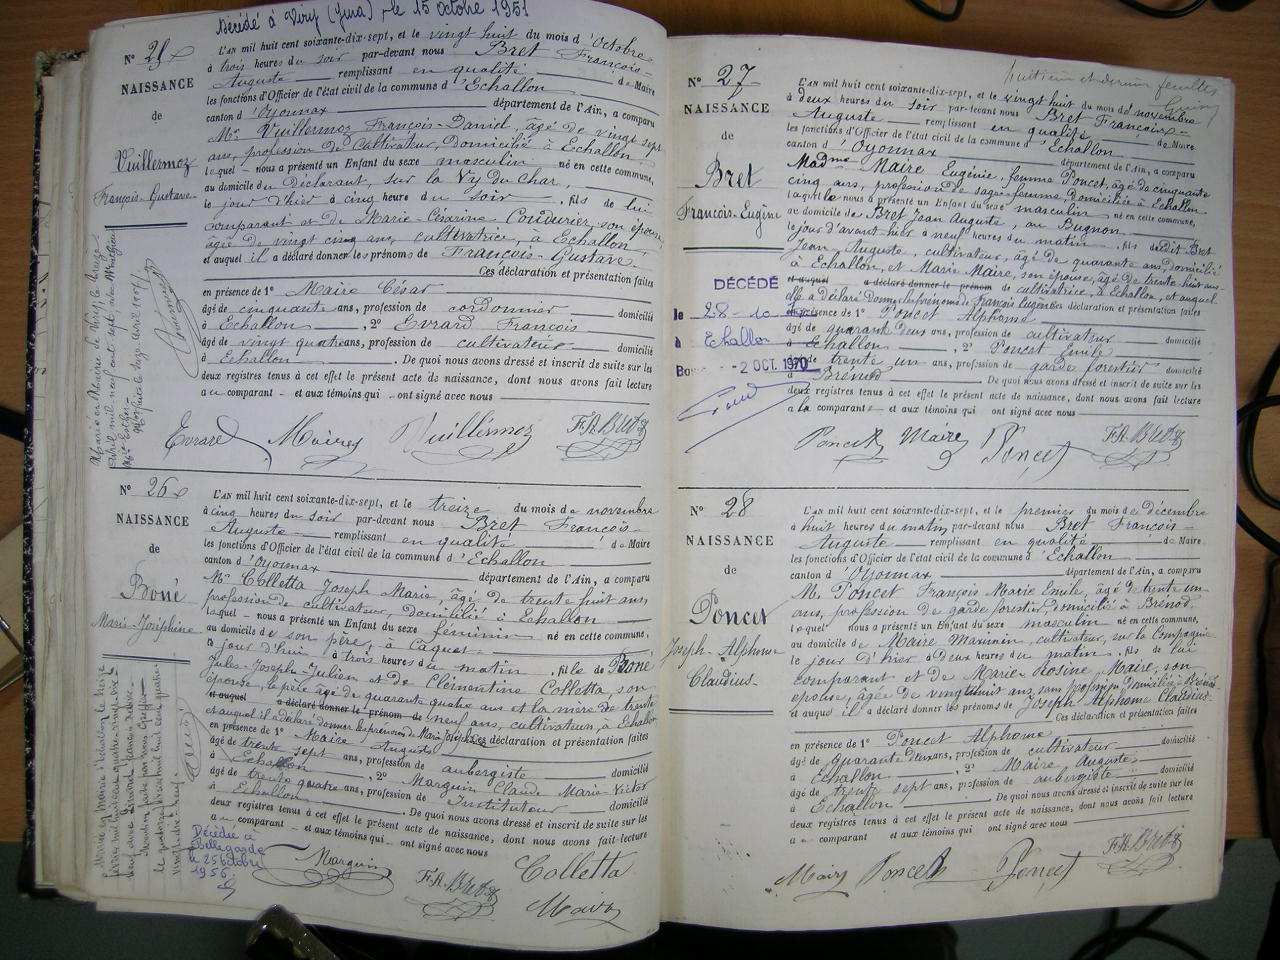 Décédé à Viry (Jura), le 15 octobre 1951
N° 25
NAISSANCE
de
Vuillermoz
François-Gustave
L'AN mil huit cent soixante-dix-sept, et le vingt huit du mois d'Octobre
à trois heures du soir par-devant nous Bret François-
Auguste remplissant en qualité de Maire
les fonctions d'Officier de l'état civil de la commune d'Echallon
canton d'Oyonnax département de l'Ain, a comparu
Mr Vuillermoz François-Daniel, âgé de vingt sept
ans, profession de Cultivateur, Domicilié à Echallon
lequel nous a présenté un Enfant du sexe masculin né en cette commune,
au domicile du Déclarant, sur la Vy du Char,
le jour d'hier à cinq heure du soir, fils de lui
comparant et de Marie-Césarine Coudurier, son épouse
âgée de vingt cinq ans, cultivatrice, à Echallon
et auquel il a déclaré donner les prénoms de François-Gustave
Ces déclaration et présentation faites
en présence de 1° Maire César
âgé de cinquante ans, profession de cordonnier domicilié
à Echallon, 2° Evrard François
âgé de vingt quatre ans, profession de cultivateur domicilié
à Echallon. De quoi nous avons dressé et inscrit de suite sur les
deux registres tenus à cet effet le présent acte de naissance, dont nous avons fait lecture
au comparant et aux témoins qui ont signé avec nous
Evrard Maire Vuillermoz F.A. Bret
N° 26
NAISSANCE
de
Boné
Marie-Joséphine
L'AN mil huit cent soixante-dix-sept, et le treize du mois de novembre
à cinq heures du soir par-devant nous Bret François-
Auguste remplissant en qualité de Maire
les fonctions d'Officier de l'état civil de la commune d'Echallon
canton d'Oyonnax département de l'Ain, a comparu
Mr Colletta Joseph Marie, âgé de trente huit ans,
profession de cultivateur, domicilié à Echallon
lequel nous a présenté un Enfant du sexe féminin né en cette commune,
au domicile de son père, à Caquet
le jour d'hui à trois heures du matin, fille de Boné
Jules-Joseph Julien et de Clémentine Colletta, son
épouse, le père âgé de quarante quatre ans et la mère de trente
et auquel a déclaré donner le prénom de neuf ans, cultivateurs, à Echallon
et auquel il a déclaré donner les prénoms de Marie Joséphine Ces déclaration et présentation faites
en présence de 1° Maire Auguste
âgé de trente sept ans, profession de aubergiste domicilié
à Echallon, 2° Marguin Claude Marie Victor
âgé de trente quatre ans, profession de Instituteur domicilié
à Echallon. De quoi nous avons dressé et inscrit de suite sur les
deux registres tenus à cet effet le présent acte de naissance, dont nous avons fait lecture
au comparant et aux témoins qui ont signé avec nous
Décédée à
Bellegarde
le 25 octobre
1956
Marguin F.A. Bret Colletta
Maire
N° 27
NAISSANCE
de
Bret
François-Eugène
huitième et dernier feuillet
L'AN mil huit cent soixante-dix-sept, et le vingt huit du mois de novembre
à deux heures du soir par-devant nous Bret François-
Auguste remplissant en qualité de Maire
les fonctions d'Officier de l'état civil de la commune d'Echallon
canton d'Oyonnax département de l'Ain, a comparu
Madme Maire Eugénie, femme Poncet, âgée de cinquante
cinq ans, profession de sage-femme, domiciliée à Echallon
laquelle nous a présenté un Enfant du sexe masculin né en cette commune,
au domicile de Bret Jean Auguste, au Bugnon
le jour d'avant hier à neuf heures du matin, fils dudit Bret
Jean Auguste, cultivateur, âgé de quarante ans, domicilié
à Echallon, et Marie Maire, son épouse, âgée de trente huit ans
et auquel a déclaré donner le prénom de cultivatrice, à Echallon, et auquel
elle a déclaré donner les prénoms de François Eugène Ces déclaration et présentation faites
en présence de 1° Poncet Alphonse
âgé de quarante deux ans, profession de cultivateur domicilié
à Echallon, 2° Poncet Emile
âgé de trente un ans, profession de garde forestier domicilié
à Brénod De quoi nous avons dressé et inscrit de suite sur les
deux registres tenus à cet effet le présent acte de naissance, dont nous avons fait lecture
à la comparant et aux témoins qui ont signé avec nous
DÉCÉDÉ
le 28-10
à Echallon
2 OCT. 1970
Poncet Maire Poncet F.A. Bret
N° 28
NAISSANCE
de
Poncet
Joseph-Alphonse
Claudius
L'AN mil huit cent soixante-dix-sept, et le premier du mois de Décembre
à huit heures du matin par-devant nous Bret François-
Auguste remplissant en qualité de Maire
les fonctions d'Officier de l'état civil de la commune d'Echallon
canton d'Oyonnax département de l'Ain, a comparu
M. Poncet François Marie Emile, âgé de trente un
ans, profession de garde forestier, domicilié à Brénod,
lequel nous a présenté un Enfant du sexe masculin né en cette commune,
au domicile de Maire Maximin cultivateur, sur la Compagnie
le jour d'hier à Deux heures du matin, fils de lui
comparant et de Marie-Rosine Maire, son
épouse, âgée de vingt huit ans, sans profession, domiciliée à Brénod
et auquel il a déclaré donner les prénoms de Joseph Alphonse Claudius
Ces déclaration et présentation faites
en présence de 1° Poncet Alphonse
âgé de quarante deux ans, profession de cultivateur domicilié
à Echallon, 2° Maire Auguste
âgé de trente sept ans, profession de aubergiste domicilié
à Echallon. De quoi nous avons dressé et inscrit de suite sur les
deux registres tenus à cet effet le présent acte de naissance, dont nous avons fait lecture
au comparant et aux témoins qui ont signé avec nous
Maire Poncet Poncet F.A. Bret